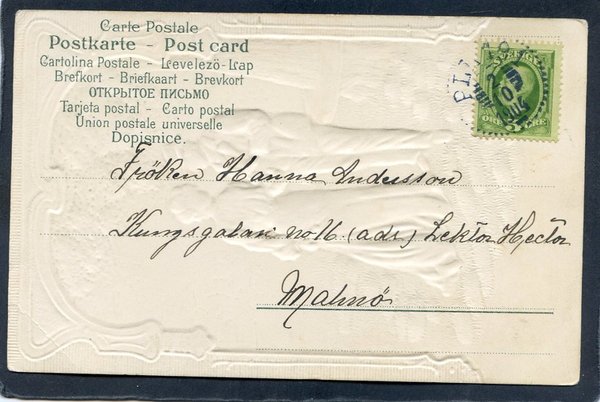 Carte Postale
Postkarte - Post card
Cartolina Postale - Levelezö-Lap
Brefkort - Briefkaart - Brevkort
ОТКРЫТОЕ ПИСЬМО
Tarjeta postal - Carto postal
Union postale universelle
Dopisnice.
SVERIGE
5
ÖRE ÖRE
Fröken Hanna Andersson
Kungsgatan no 16 (adr.) Lektor Hector
Malmö